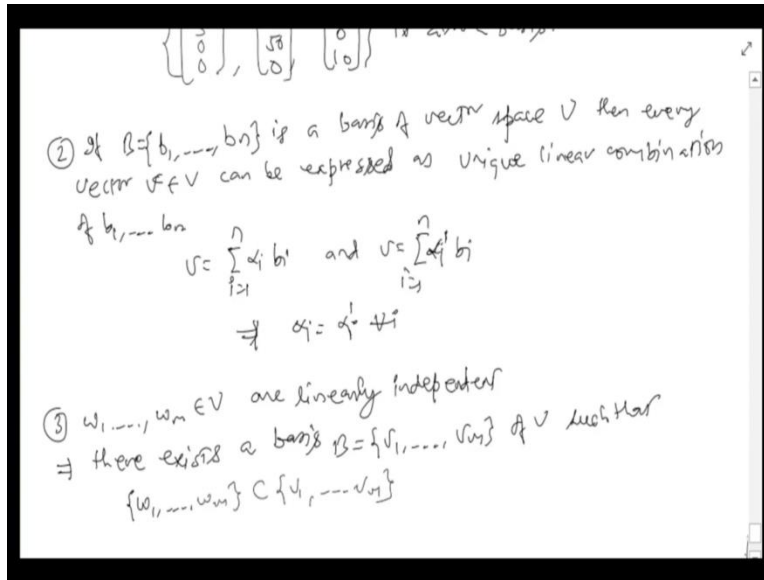 {[5 0 0], [0 50 0], [0 0 10]} is also a basis
② If B={b1,...,bn} is a basis of vector space V then every
vector v∈V can be expressed as unique linear combination
of b1,...bn
v= n∑i=1 αi bi and v= n∑i=1 αi' bi
⇒ αi = αi' ∀i
③ w1,...,wm ∈V are linearly independent
⇒ there exists a basis B={v1,...,vn} of V such that
{w1,...,wm} ⊂ {v1,...vn}